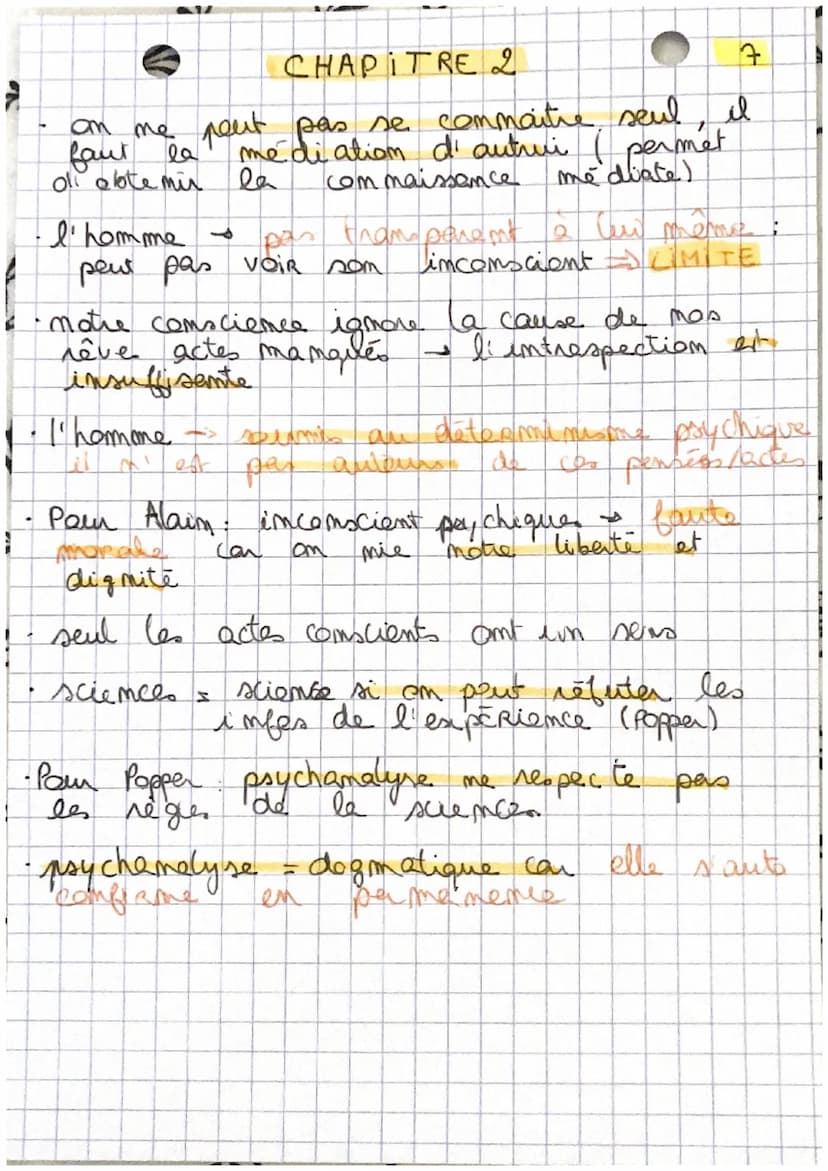 CHAPITRE 2
7
- on ne peut pas se connaître seul, il
faut la médiation d'autrui ( permet
d'obtenir la connaissance médiate)
· l'homme → pas transparent à lui même :
peut pas voir son inconscient ⇒ LIMITE
· notre conscience ignore la cause de nos
rêve actes manqués → l'introspection est
insuffisante
· l'homme → soumis au déterminisme psychique
il n'est pas auteur de ces pensées/actes
· Pour Alain : inconscient psychique → faute
morale car on nie notre liberté et
dignité
· seul les actes conscients ont un sens
· sciences = science si on peut réfuter les
infos de l'expérience (Popper)
· Pour Popper : psychanalyse ne respecte pas
les règles de la sciences
· psychanalyse = dogmatique car elle s'auto
confirme en permanence